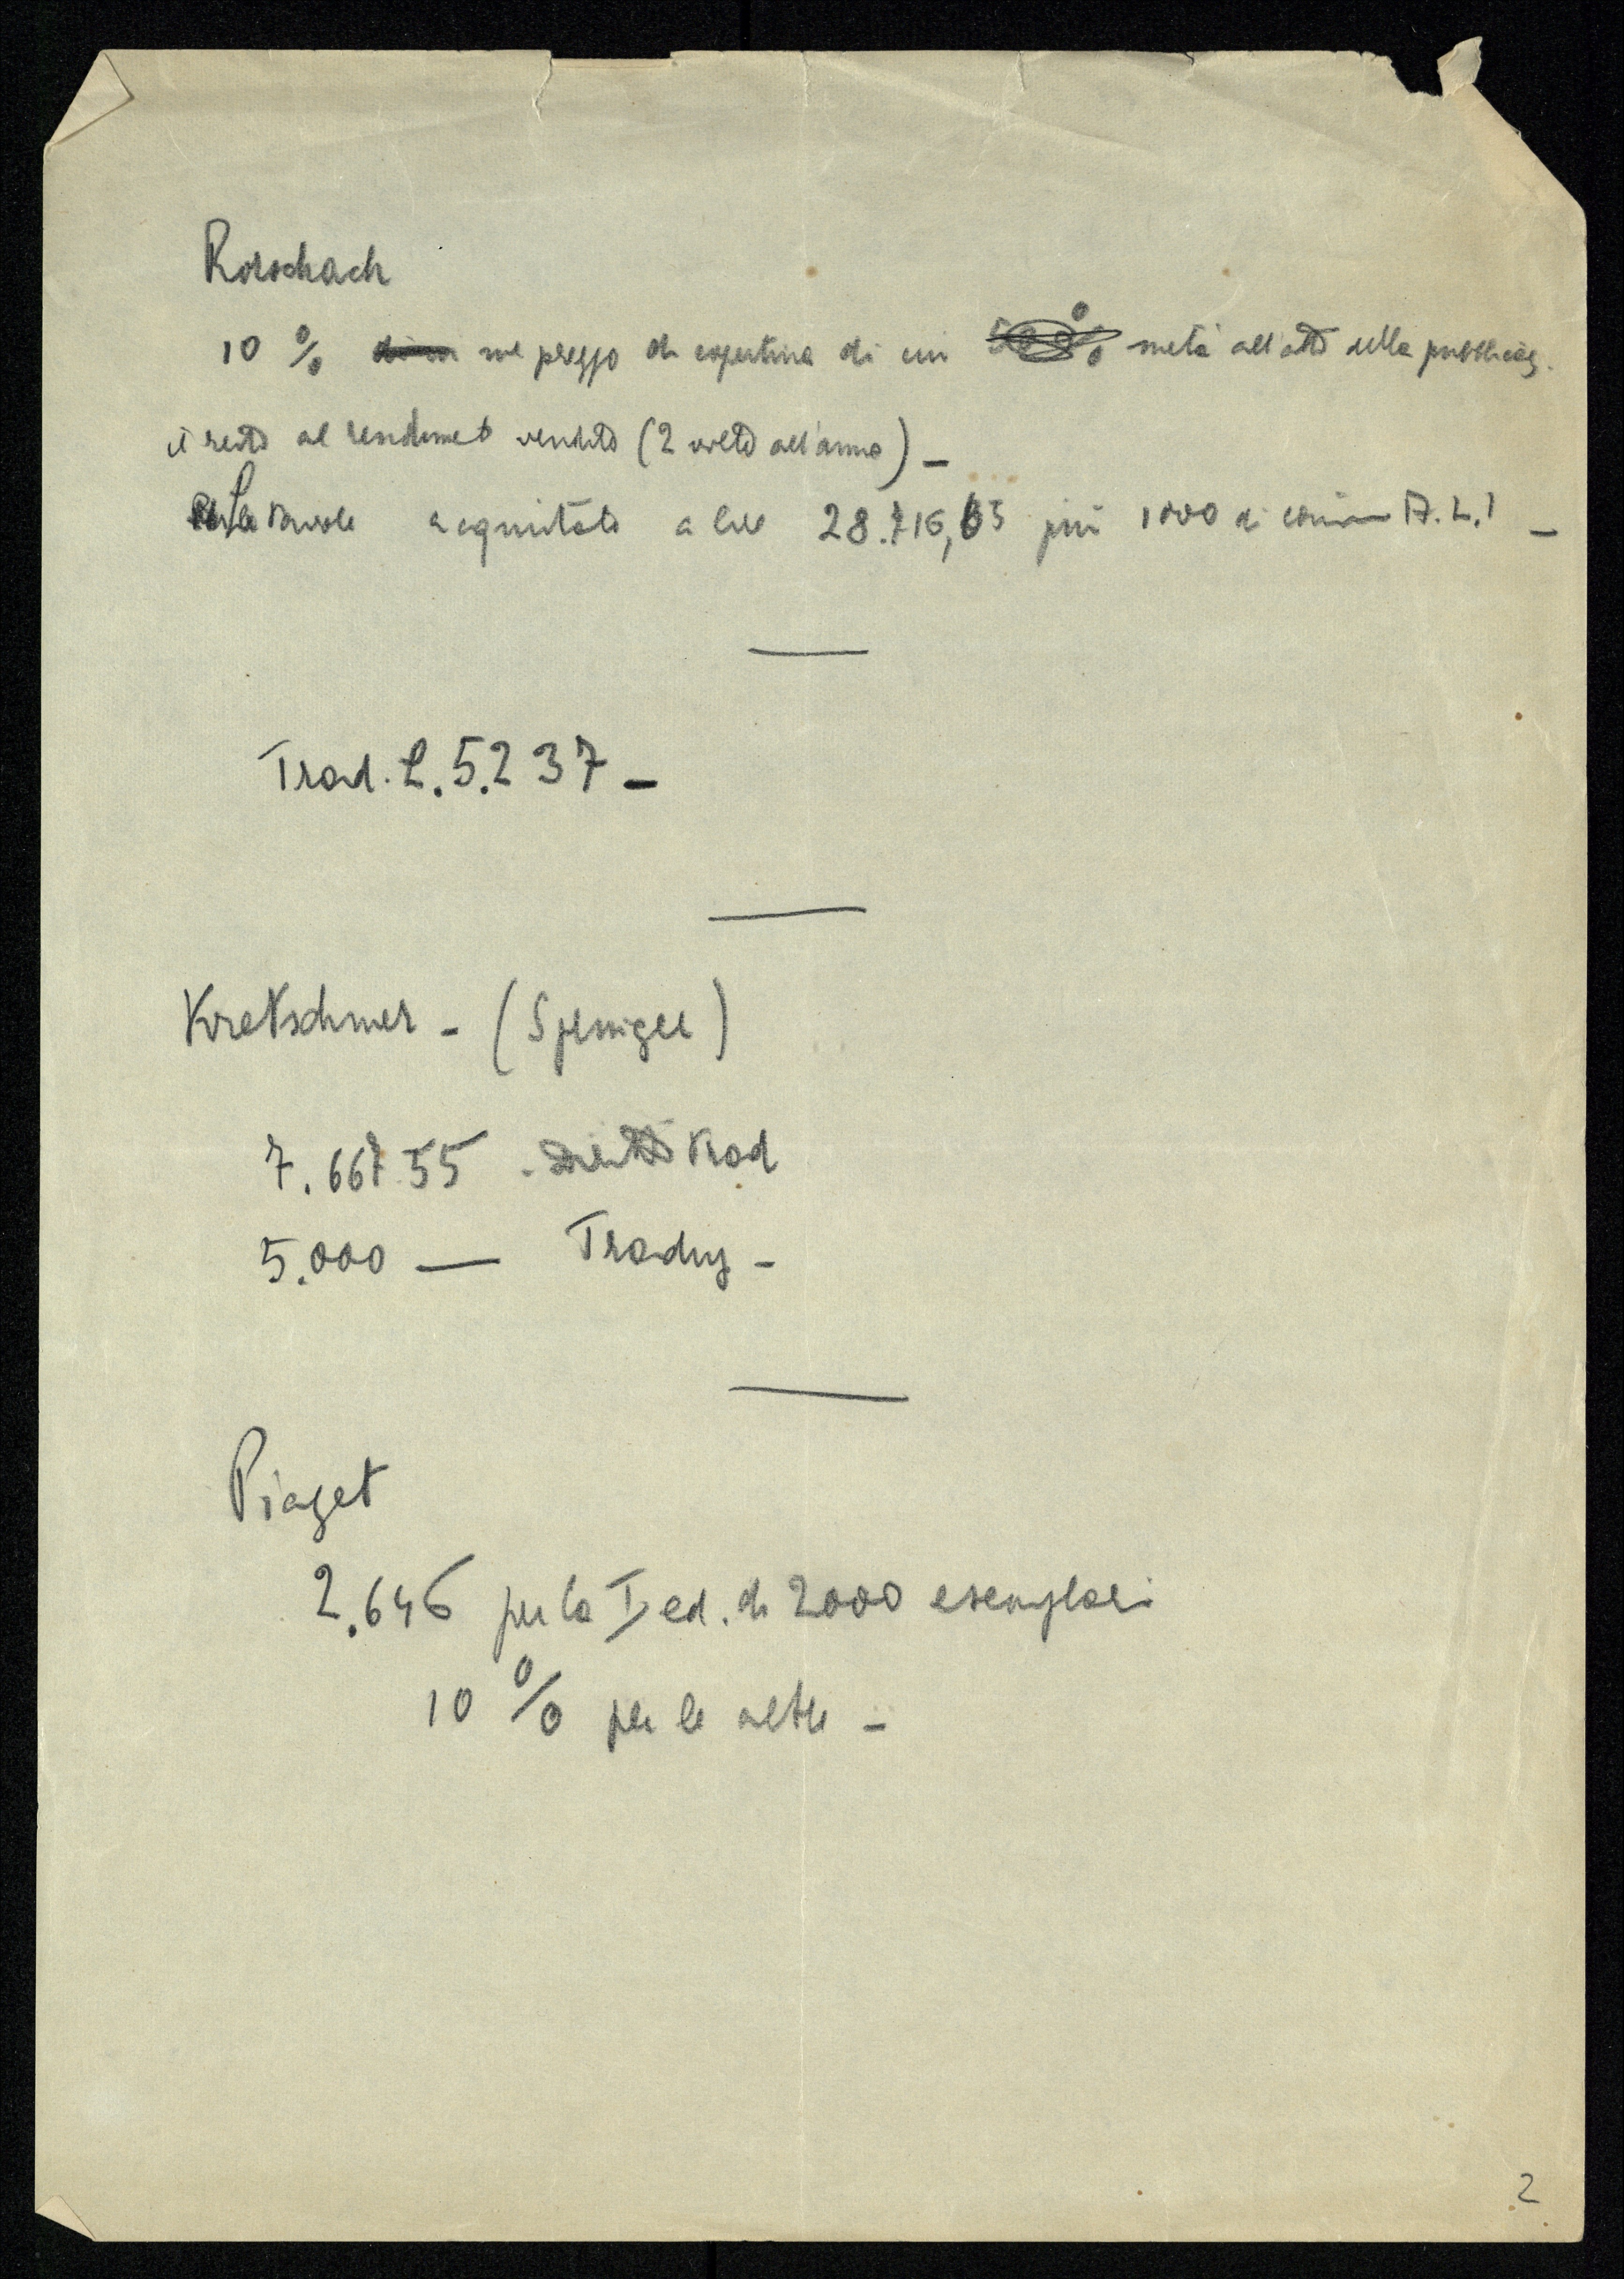 Rorschach
10 % sul prezzo di copertina di cui 50% metà all'atto della pubblicaz.
il resto al rendimet venduto (2 volte all'anno) —
Le tavole acquistate a lire 28.716,65 più 1000 di A.L.I —
Trad. L. 5.237 —
Kretschmer — (Springer)
7.667.55 diritti trad
5.000 — Traduz —
Piaget
2.646 per la I ed. di 2000 esemplari
10 % per le altre —
2